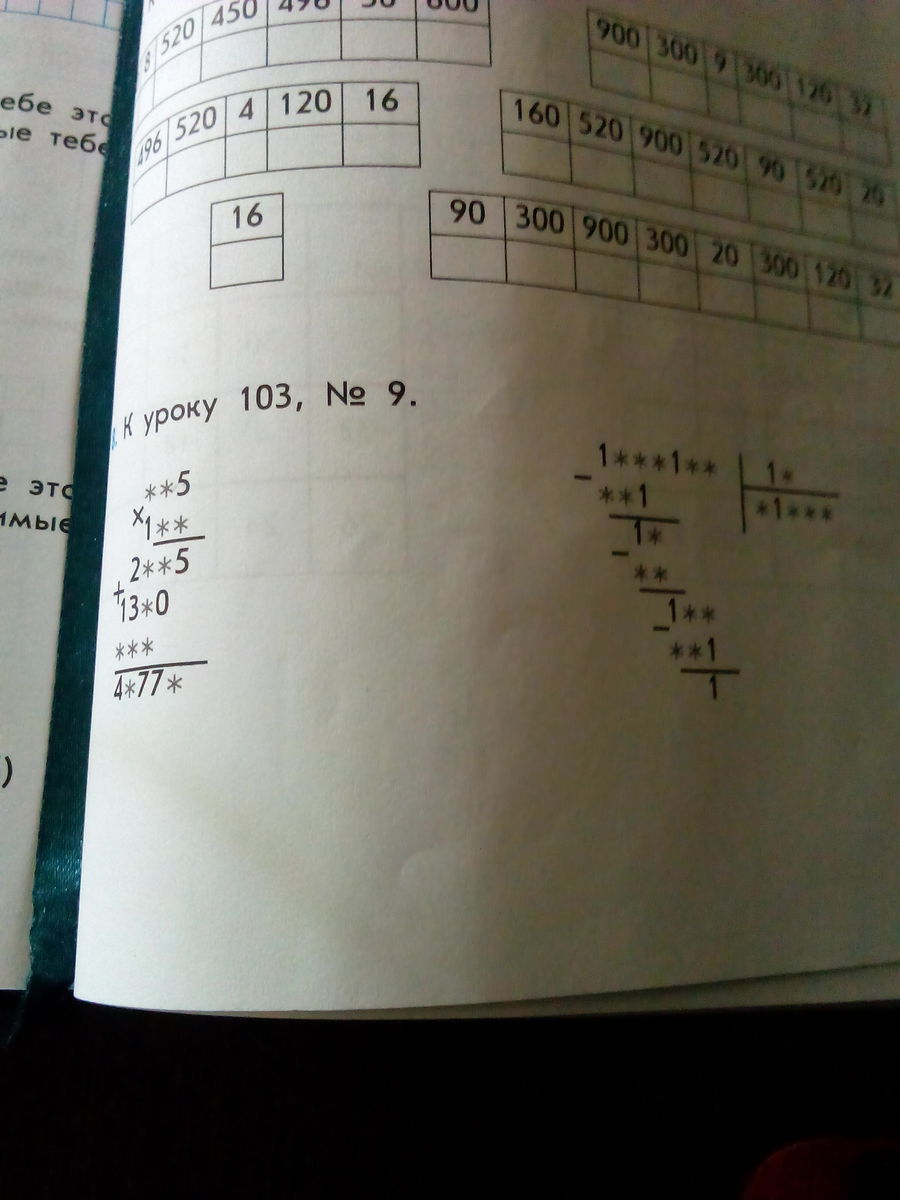 8 520 450 496 50 600
900 300 9 300 120 32
496 520 4 120 16
160 520 900 520 90 520 20
16
90 300 900 300 20 300 120 32
ебе это
ые тебе
К уроку 103, № 9.
е это
имые
)
**5
×
1**
2**5
+
13*0
***
4*77*
− 1***1** 1*
**1 *1***
1*
−
**
1**
−
**1
1